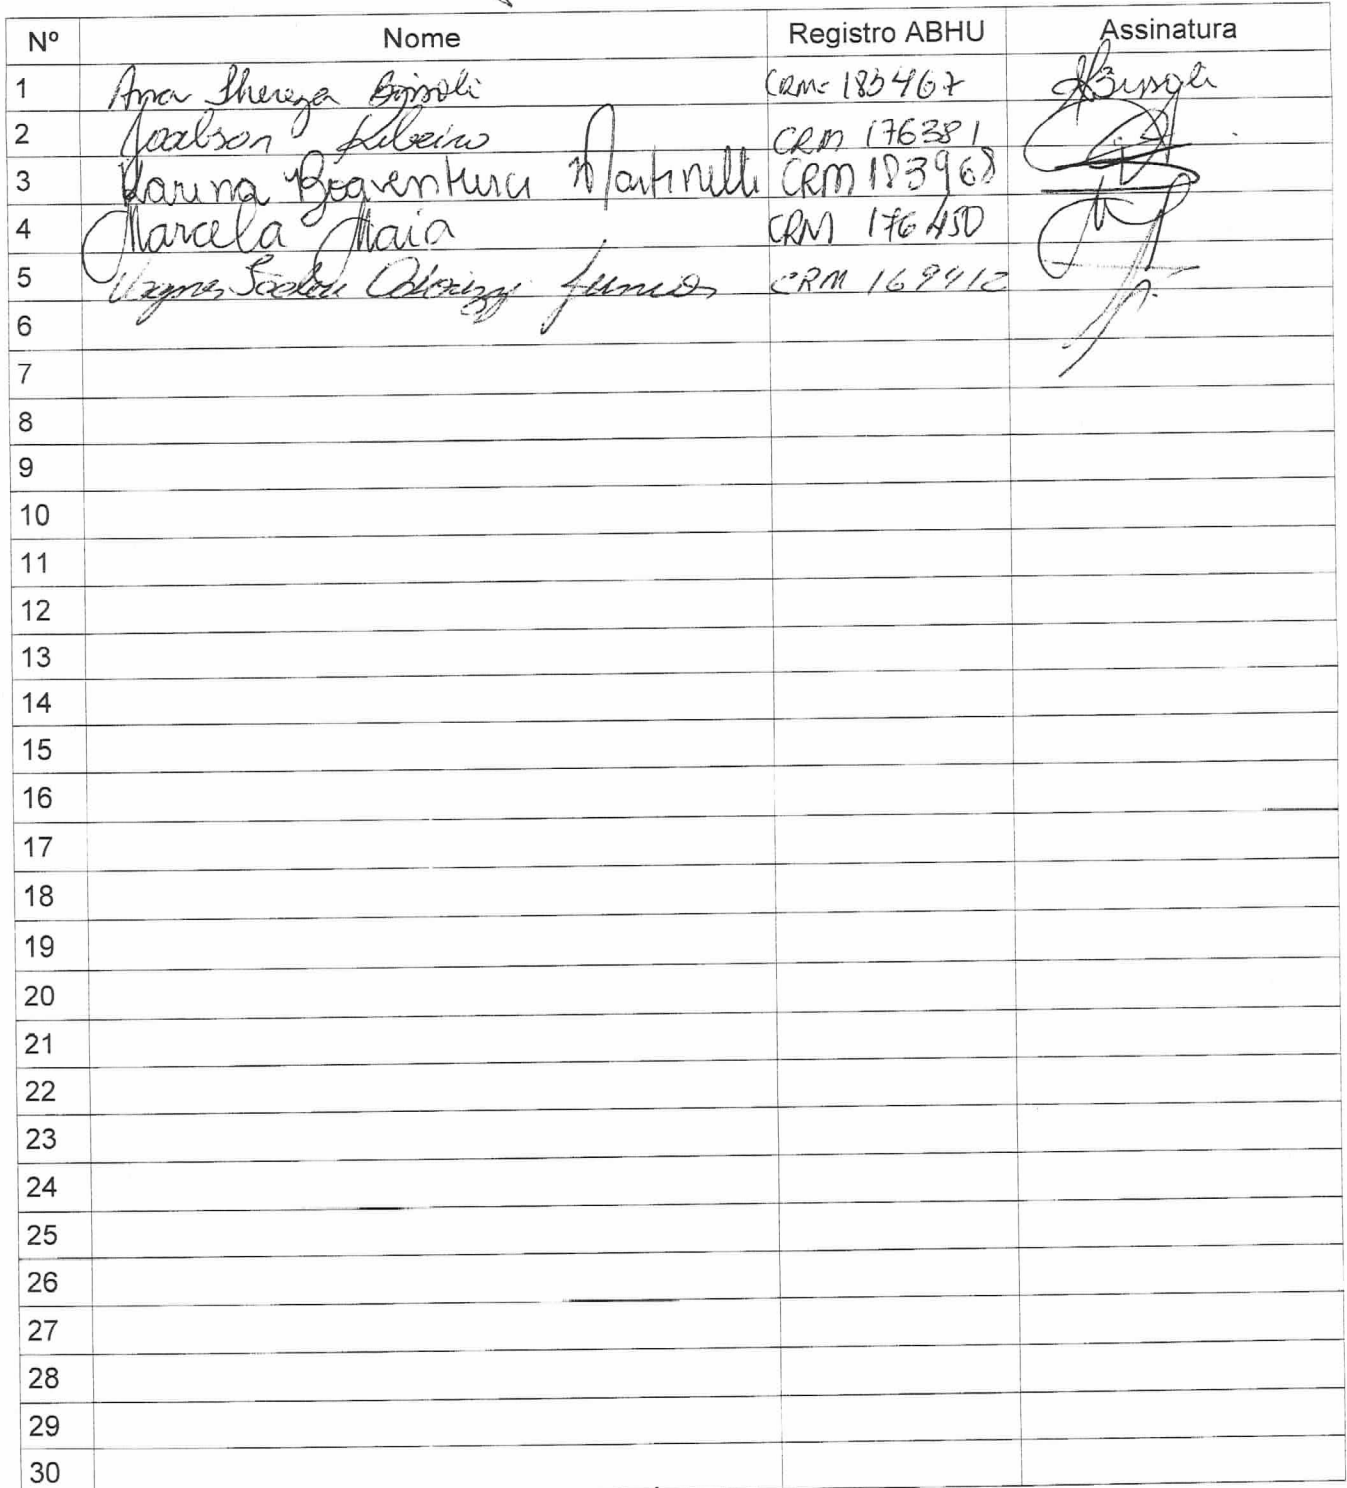 Nº Nome Registro ABHU Assinatura
1 Ana Thereza Bissoli CRM- 183467 Bissoli
2 Joalson Ribeiro CRM 176381
3 Karina Boaventura Martinelli CRM 183968
4 Marcela Maia CRM 176450
5 Vagner Junior CRM 169412
6
7
8
9
10
11
12
13
14
15
16
17
18
19
20
21
22
23
24
25
26
27
28
29
30